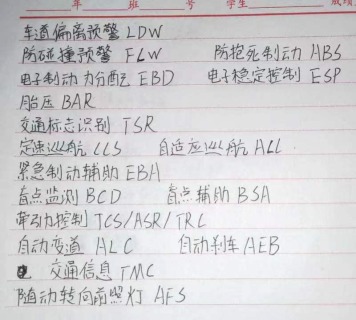 年 班 号 学生 成绩
车道偏离预警 LDW
防碰撞预警 FLW 防抱死制动 ABS
电子制动力分配 EBD 电子稳定控制 ESP
胎压 BAR
交通标志识别 TSR
定速巡航 CCS 自适应巡航 ALL
紧急制动辅助 EBA
盲点监测 BCD 盲点辅助 BSA
牵动力控制 TCS/ASR/TRC
自动变道 ALC 自动刹车 AEB
交通信息 TMC
随动转向前照灯 AFS